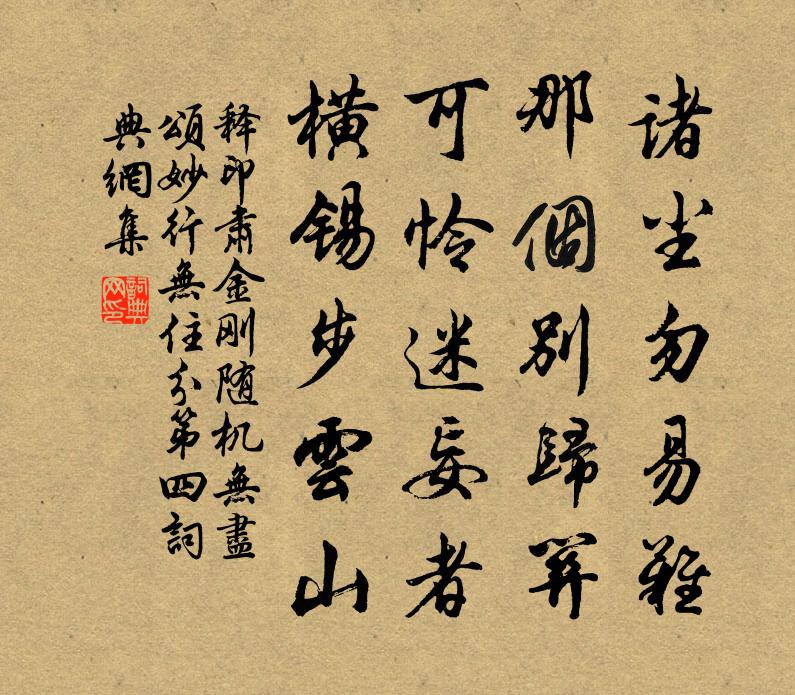 諸尘勿易難
那個別歸關
可怜迷妄者
橫錫步雲山
释印肅金刚随机無盡
頌妙行無住分第四詞
典網集
詞典
网印